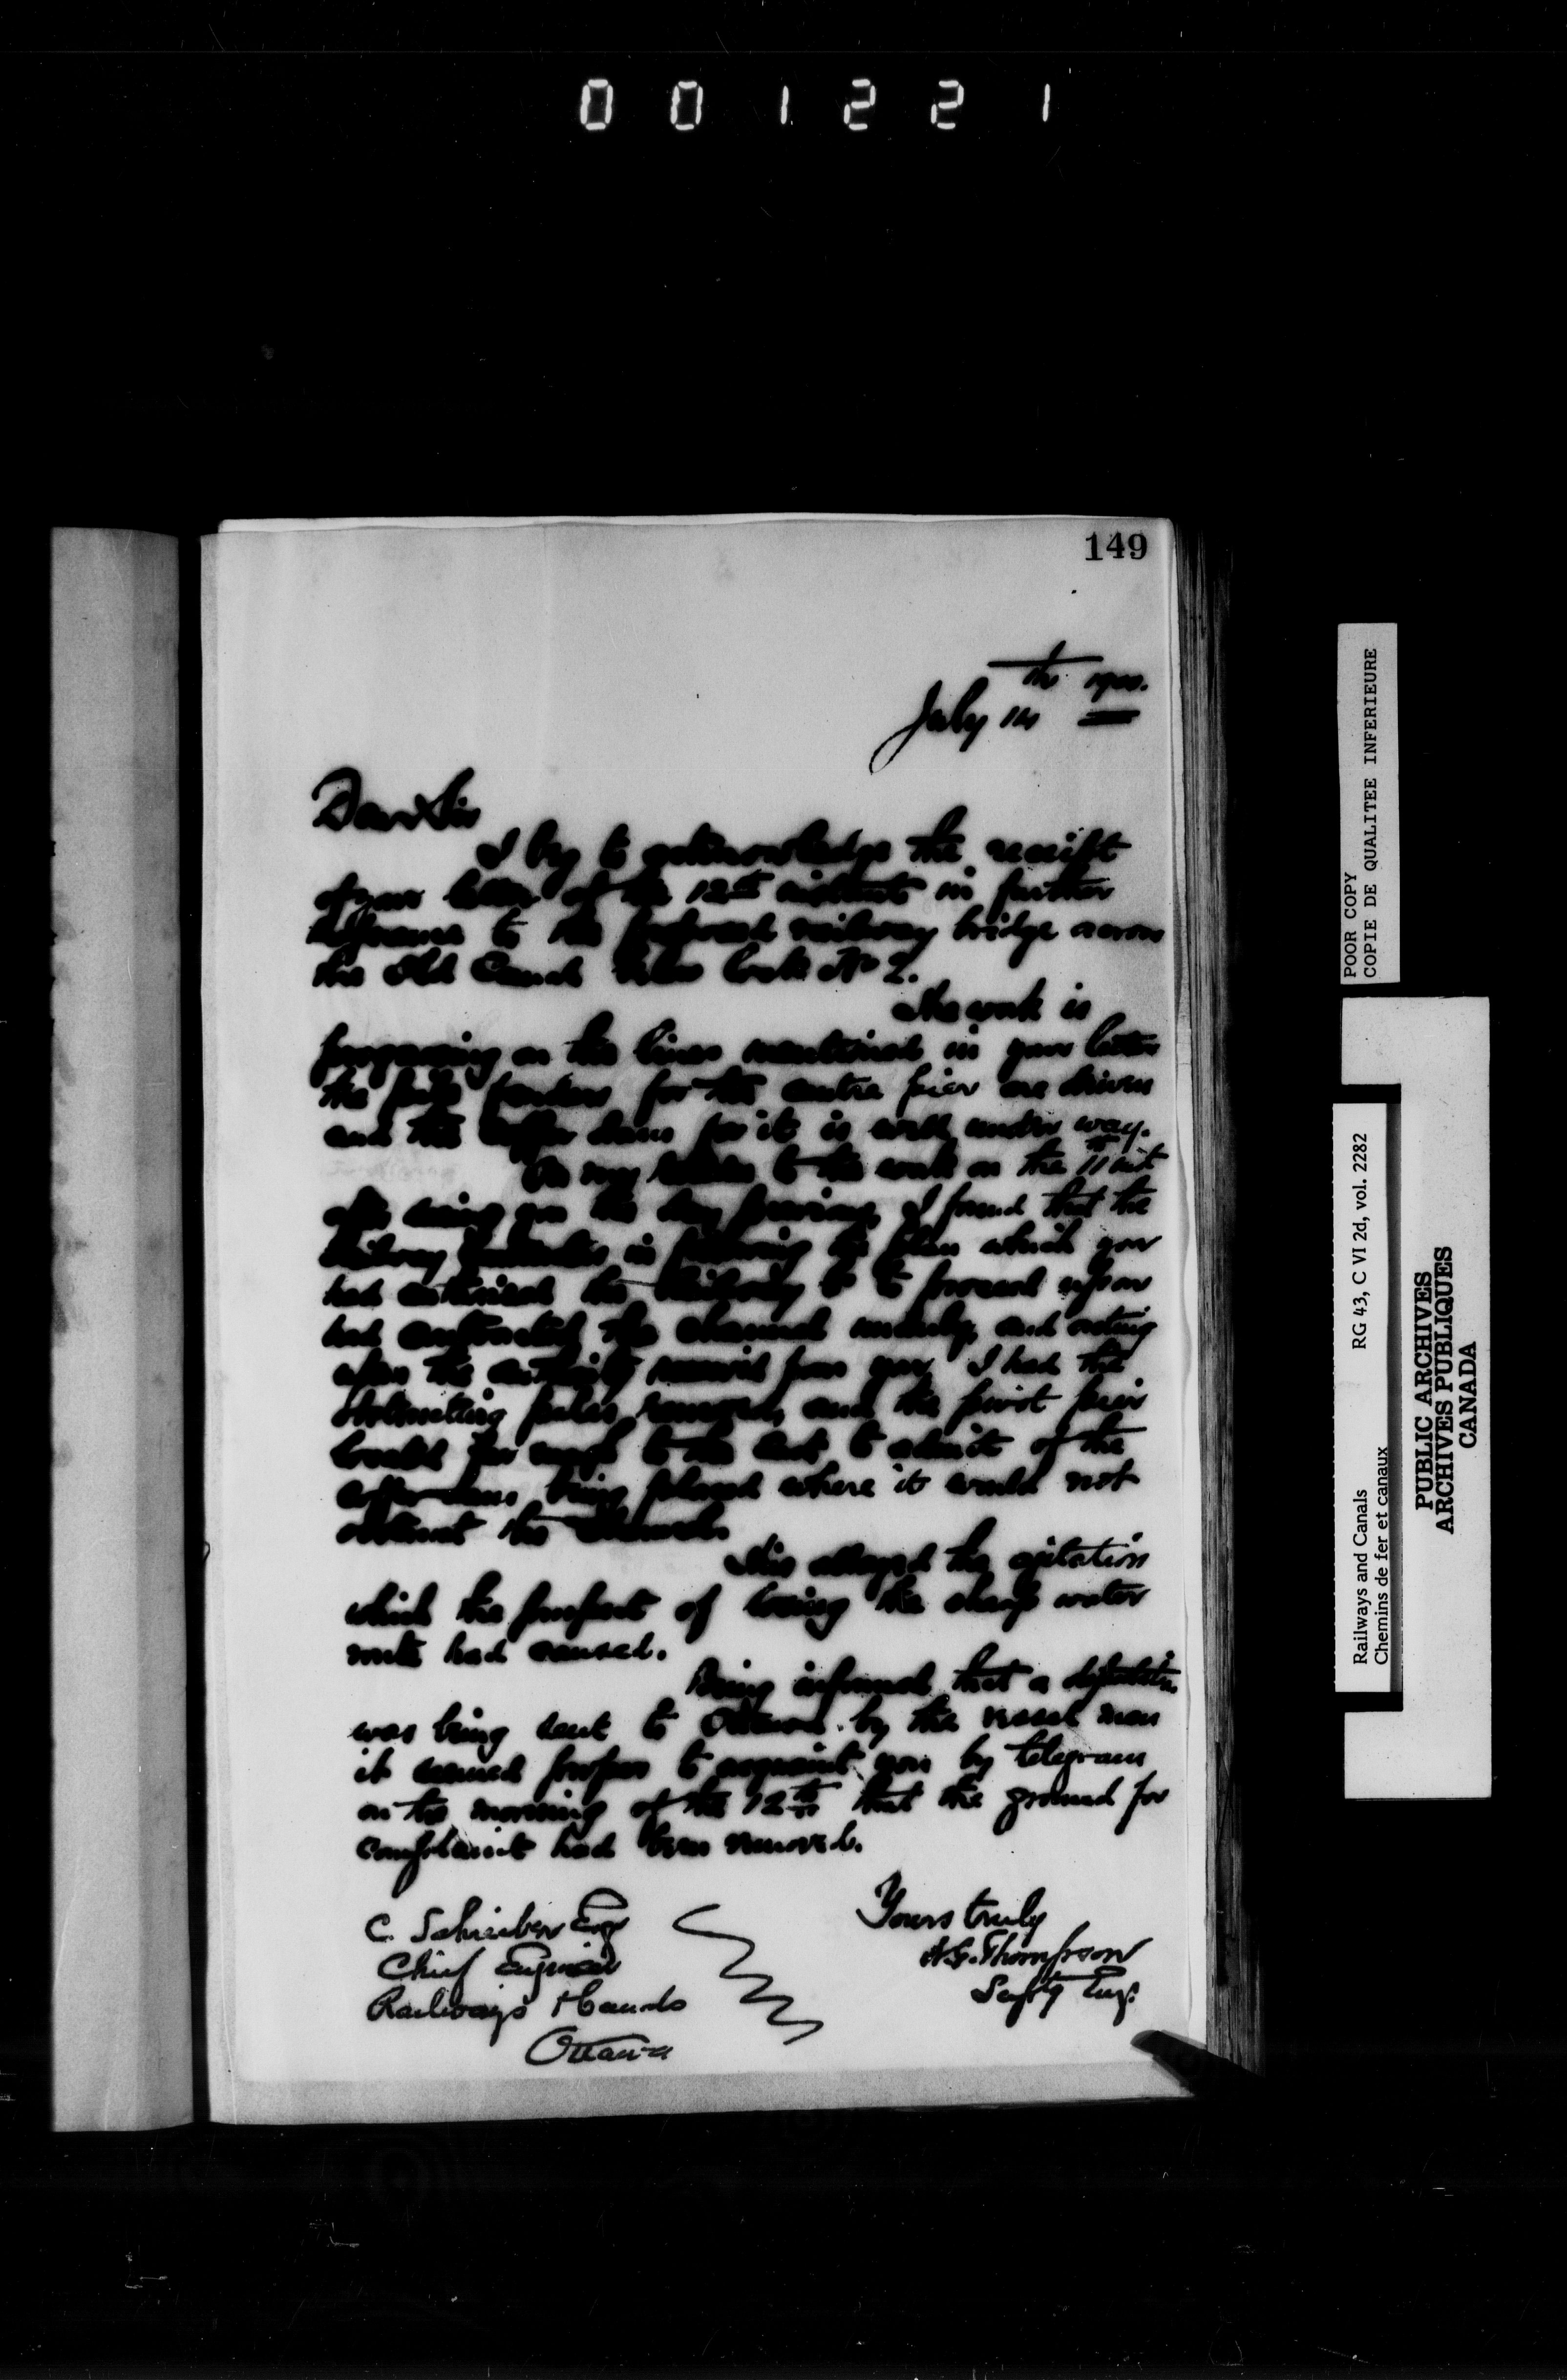 001221
149
July 14th 1900.
Dear Sir
I beg to acknowledge the receipt
of your letter of the 12th instant in further
reference to the proposed railway bridge across
the Old Canal below lock No 2.
The work is
progressing on the lines mentioned in your letter
the pile fenders for the centre pier are driven
and the coffer dam for it is well under way.
On my return to the work on the 11th inst
after seeing you the day previous, I found that the
Railway in following the plan which you
had authorised the Railway Co to proceed upon
had contracted the channel unduly, and acting
upon the authority received from you I had the
obstructing piles removed, and the pivot pier
located far enough to the east to admit of the
coffer dam being placed where it would not
obstruct the channel.
This allayed the agitation
which the prospect of losing the cheap water
route had caused.
Being informed that a deputation
was being sent to Ottawa by the vessel men
it seemed proper to acquaint you by telegram
on the morning of the 12th that the ground for
complaint had been removed.
Yours truly
W.G. Thompson
Supt'g Eng.
C. Schreiber Esq
Chief Engineer
Railways & Canals
Ottawa
POOR COPY
COPIE DE QUALITEE INFERIEURE
Railways and Canals RG 43, C VI 2d, vol. 2282
Chemins de fer et canaux
PUBLIC ARCHIVES
ARCHIVES PUBLIQUES
CANADA